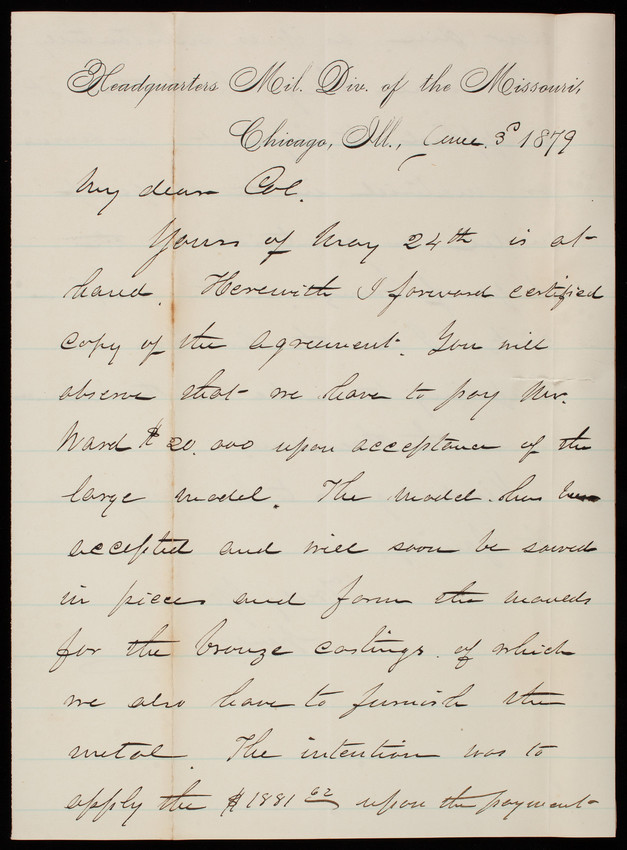 Headquarters Mil. Div. of the Missouri,
Chicago, Ill., June 3d 1879
My dear Col.
Yours of May 24th is at
hand. Herewith I forward certified
copy of the agreement. You will
observe that we have to pay Mr.
Ward $20.000 upon acceptance of the
large model. The model has been
accepted and will soon be sawed
in pieces and form the moulds
for the bronze castings of which
we also have to furnish the
metal. The intention was to
apply the $1881 62 upon the payment